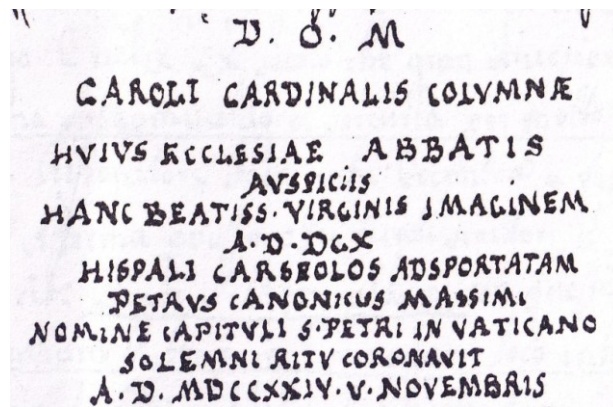 D. O. M
CAROLI CARDINALIS COLVMNÆ
HVIVS ECCLESIAE ABBATIS
AVSPICIIS
HANC BEATISS. VIRGINIS IMAGINEM
A. D DCX
HISPALI CARSEOLOS ADSPORTATAM
PETRVS CANONICUS MASSIMI
NOMINE CAPITVLI S. PETRI IN VATICANO
SOLEMNI RITV CORONAVIT
A. D. MDCCXXIV. V. NOVEMBRIS